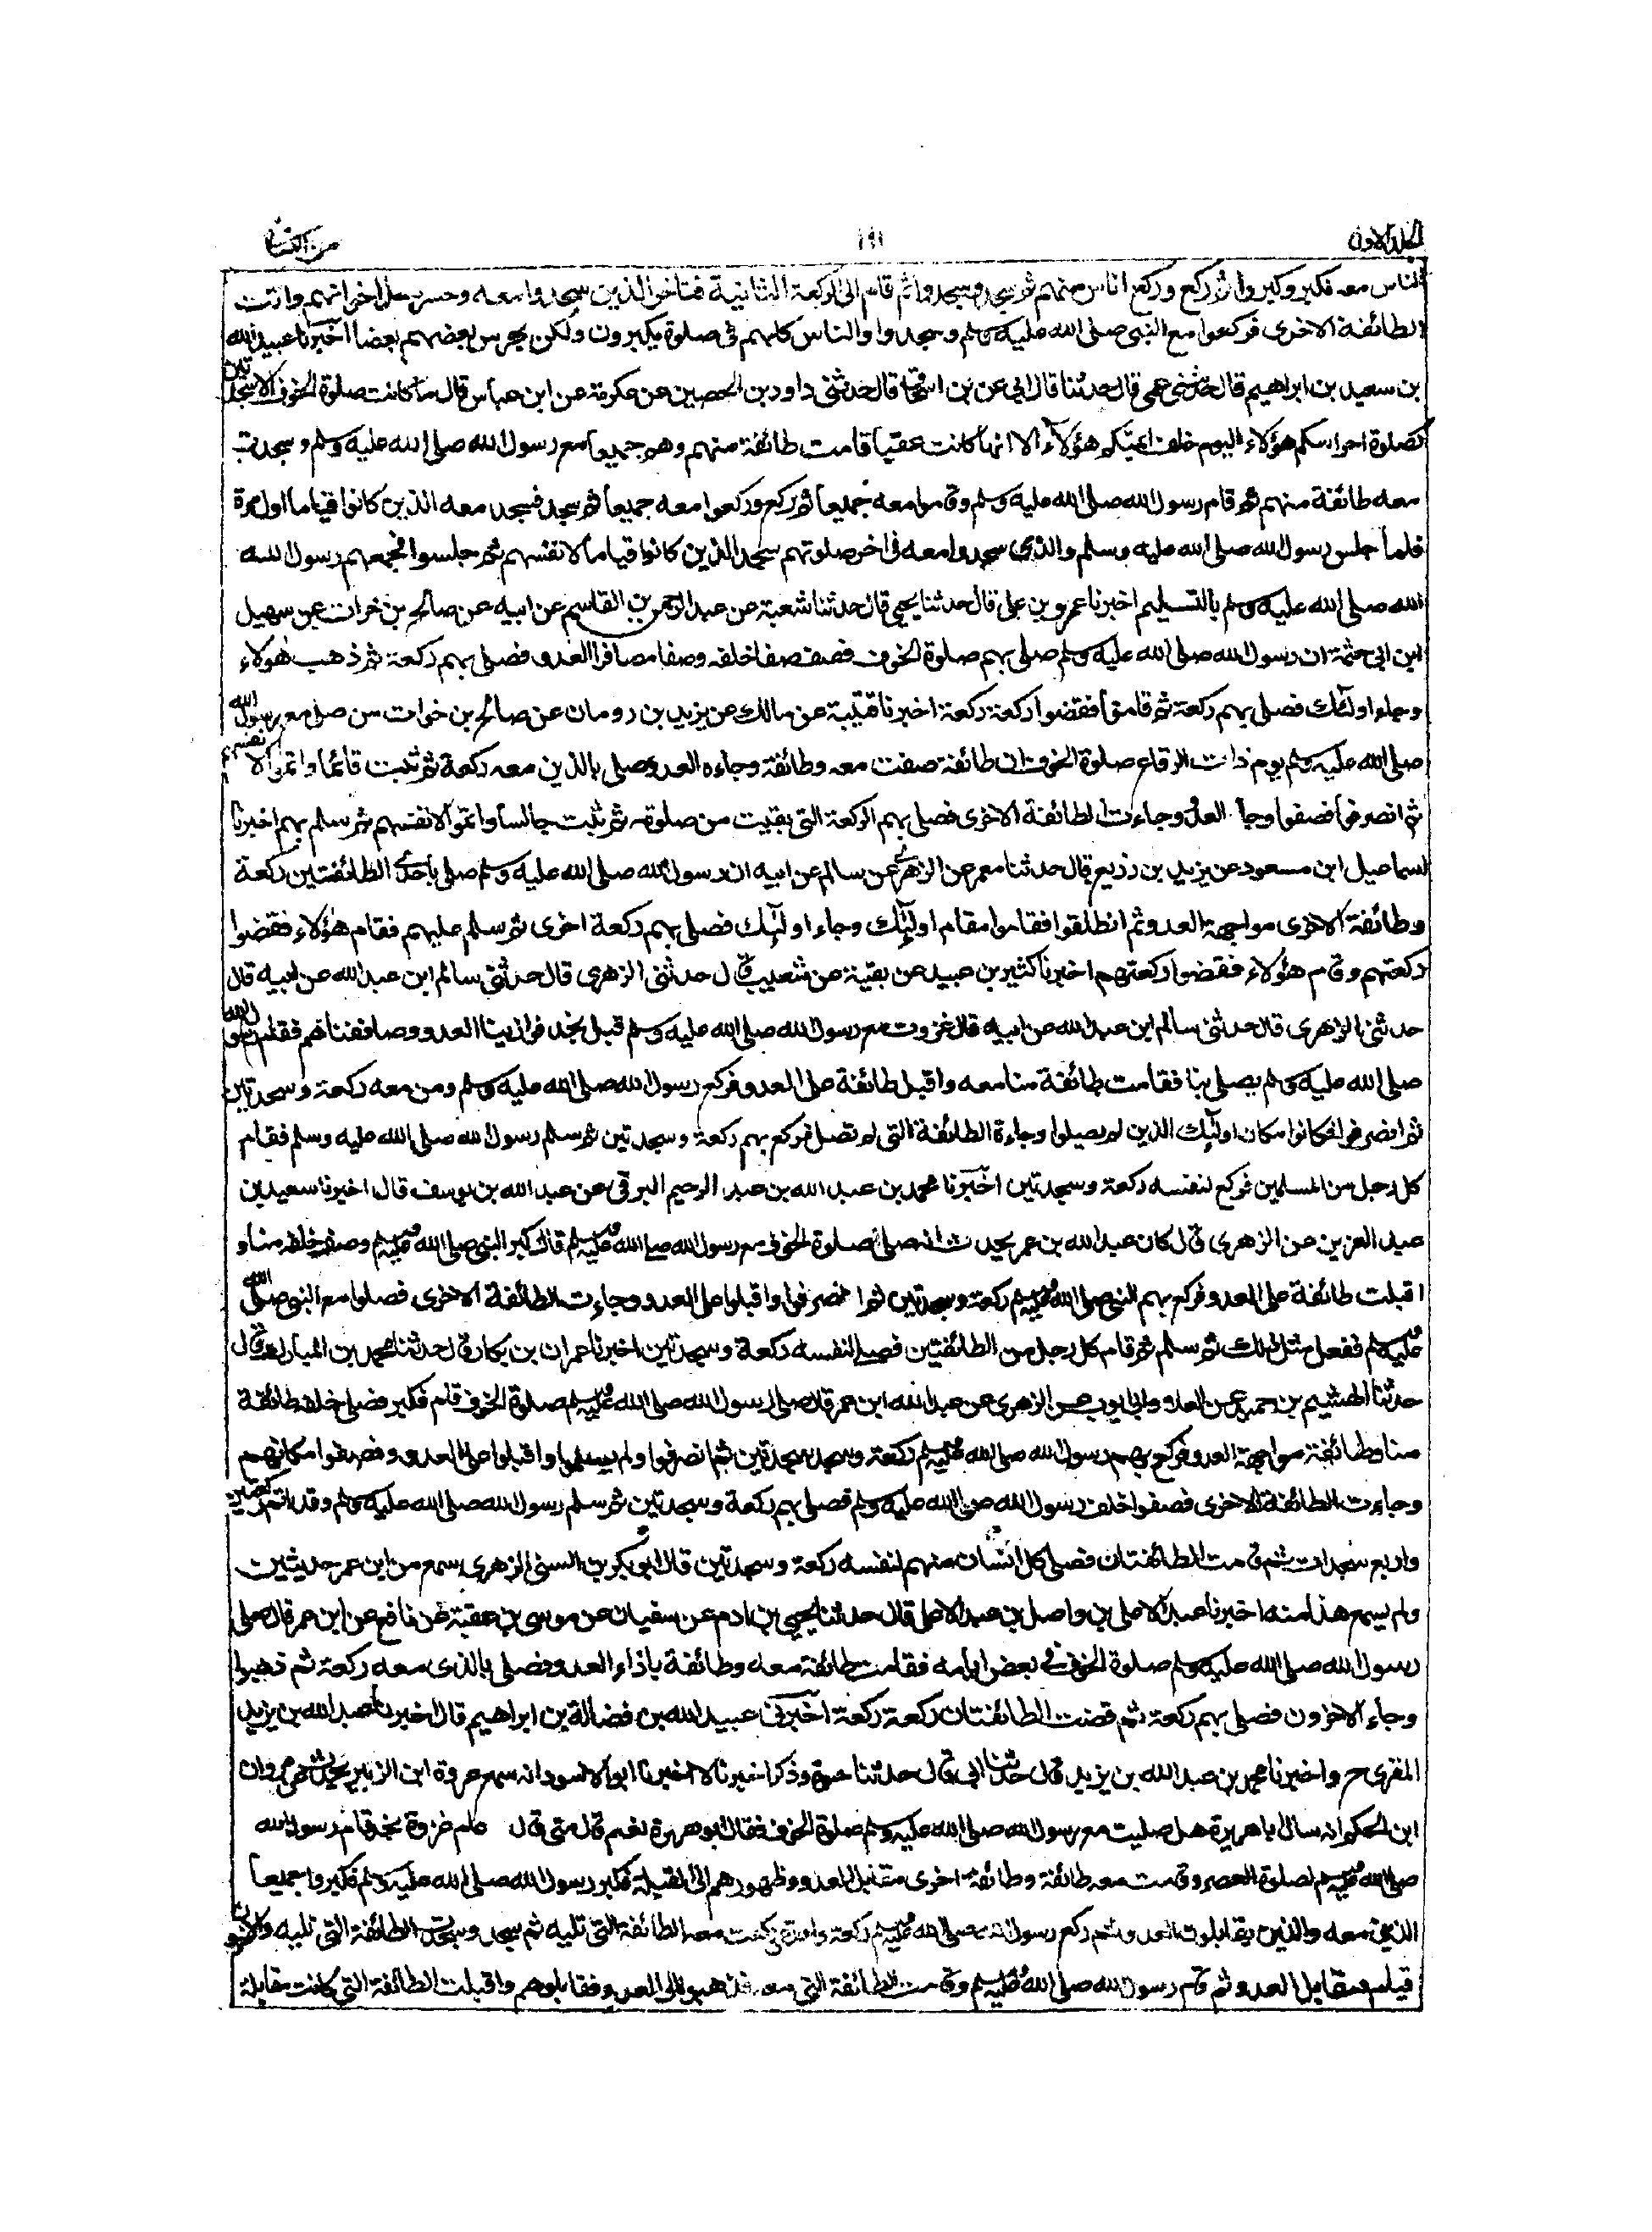 المجلد الاول ١٩١ من النسائى
الناس معه فكبر وكبروا ثم ركع وركع اناس منهم ثم سجد وسجدوا ثم قام الى الركعة الثانية فتاخر الذين سجدوا معه وحرسوا اخوانهم واتت
الطائفة الاخرى فركعوا مع النبى صلى الله عليه وسلم وسجدوا والناس كلهم فى صلوة يكبرون ولكن يحرس بعضهم بعضا اخبرنا عبيد الله
بن سعيد بن ابراهيم قال حدثنى عمى قال حدثنا قال ابى عن بن اسحٰق قال حدثنى داود بن الحصين عن عكرمة عن ابن عباس قال ما كانت صلوة الخوف الا سجدتين
كصلوة احراسكم هؤلاء اليوم خلف ائمتكم هؤلاء الا انها كانت عقبا قامت طائفة منهم وهم جميعا مع رسول الله صلى الله عليه وسلم وسجدت
معه طائفة منهم ثم قام رسول الله صلى الله عليه وسلم وقاموا معه جميعا ثم ركع وركعوا معه جميعا ثم سجد فسجد معه الذين كانوا قياما اول مرة
فلما جلس رسول الله صلى الله عليه وسلم والذى سجدوا معه فى اخر صلوتهم سجد الذين كانوا قياما لانفسهم ثم جلسوا فجمعهم رسول الله
الله صلى الله عليه وسلم بالتسليم اخبرنا عمرو بن على قال حدثنا يحيى قال حدثنا شعبة عن عبد الرحمن بن القاسم عن ابيه عن صالح بن خوات عن سهيل
ابن ابى حثمة ان رسول الله صلى الله عليه وسلم صلى بهم صلوة الخوف فصف صفا خلفه وصفا مصافوا العدو فصلى بهم ركعة ثم ذهب هؤلاء
وجاء اولئك فصلى بهم ركعة ثم قاموا فقضوا ركعة ركعة اخبرنا قتيبة عن مالك عن يزيد بن رومان عن صالح بن خوات من صلى مع رسول الله
صلى الله عليه وسلم يوم ذات الرقاع صلوة الخوف ان طائفة صفت معه وطائفة وجاءه العدو صلى بالذين معه ركعة ثم ثبت قائما واتموا لانفسهم
ثم انصرفوا فصفوا وجاء العدو وجاءت الطائفة الاخرى فصلى بهم الركعة التى بقيت من صلوته ثم ثبت جالسا واتموا لانفسهم ثم سلم بهم اخبرنا
اسماعيل ابن مسعود عن يزيد بن زريع قال حدثنا معمر عن الزهرى عن سالم عن ابيه ان رسول الله صلى الله عليه وسلم صلى باحدى الطائفتين ركعة
وطائفة الاخرى مواجهة العدو ثم انطلقوا فقاموا مقام اولئك وجاء اولئك فصلى بهم ركعة اخرى ثم سلم عليهم فقام هؤلاء فقضوا
ركعتهم وقام هؤلاء فقضوا ركعتهم اخبرنا كثير بن عبيد عن بقية عن شعيب قال حدثنى الزهرى قال حدثنى سالم ابن عبد الله عن ابيه قال
حدثنى الزهرى قال حدثنى سالم ابن عبد الله عن ابيه قال غزوت مع رسول الله صلى الله عليه وسلم قبل نجد فوازينا العدو وصاففناهم فقام رسول الله
صلى الله عليه وسلم يصلى بنا فقامت طائفة منا معه واقبل طائفة على العدو فركع رسول الله صلى الله عليه وسلم ومن معه ركعة وسجدتين
ثم انصرفوا فكانوا مكان اولئك الذين لم يصلوا وجاءة الطائفة التى لم تصل فركع بهم ركعة وسجدتين ثم سلم رسول الله صلى الله عليه وسلم فقام
كل رجل من المسلمين فركع لنفسه ركعة وسجدتين اخبرنا محمد بن عبد الله بن عبد الرحيم البرقى عن عبد الله بن يوسف قال اخبرنا سعيد بن
عبد العزيز عن الزهرى قال كان عبد الله بن عمر يحدث انه صلى صلوة الخوف مع رسول الله صلى الله عليه وسلم قال كبر النبى صلى الله عليه وسلم وصف خلفه منا و
اقبلت طائفة على العدو فركع بهم النبى صلى الله عليه وسلم ركعة وسجدتين ثم انصرفوا واقبلوا على العدو وجاءت الطائفة الاخرى فصلوا مع النبى صلى الله
عليه وسلم ففعل مثل ذلك ثم سلم ثم قام كل رجل من الطائفتين فصلى لنفسه ركعة وسجدتين اخبرنا عمران بن بكار قال حدثنا محمد بن المبارك قال
حدثنا الهشيم بن حميد عن العلاء وابى ايوب عن الزهرى عن عبد الله ابن عمر قال صلى رسول الله صلى الله عليه وسلم صلوة الخوف قام فكبر فصلى خلفه طائفة
منا وطائفة مواجهة العدو فركع بهم رسول الله صلى الله عليه وسلم ركعة وسجد سجدتين ثم انصرفوا ولم يسلموا واقبلوا على العدو وفصفوا مكانهم
وجاءت الطائفة الاخرى فصفوا خلف رسول الله صلى الله عليه وسلم فصلى بهم ركعة وسجدتين ثم سلم رسول الله صلى الله عليه وسلم وقد اتم ركعتين
واربع سجدات ثم قامت الطائفتان فصلى كل انسان منهم لنفسه ركعة وسجدتين قال ابو بكر بن السنى الزهرى سمع من ابن عمر حديثين
ولم يسمع هذا منه اخبرنا عبد الاعلى بن واصل بن عبد الاعلى قال حدثنا يحيى بن ادم عن سفيان عن موسى بن عقبة عن نافع عن ابن عمر قال صلى
رسول الله صلى الله عليه وسلم صلوة الخوف فى بعض ايامه فقامت طائفة معه وطائفة باذاء العدو فصلى بالذى معه ركعة ثم ذهبوا
وجاء الاخرون فصلى بهم ركعة ثم قضت الطائفتان ركعة ركعة اخبرنى عبيد الله بن فضالة بن ابراهيم قال اخبرنا عبد الله بن يزيد
المقرى ح واخبرنا محمد بن عبد الله بن يزيد قال حدثنا ابى قال حدثنا حيوة وذكر اخبرنا لا اخبرنا ابو الاسود انه سمع عروة ابن الزبير يحدث عن مروان
ابن الحكم انه سال ابا هريرة هل صليت مع رسول الله صلى الله عليه وسلم صلوة الخوف فقال ابو هريرة نعم قال متى قال عام غزوة نجد قام رسول الله
صلى الله عليه وسلم لصلوة العصر وقامت معه طائفة وطائفة اخرى مقابل العدو وظهورهم الى القبلة فكبر رسول الله صلى الله عليه وسلم فكبروا جميعا
الذين معه والذين يقابلون العدو ثم ركع رسول الله صلى الله عليه وسلم ركعة واحدة وركعت معه الطائفة التى تليه ثم سجد وسجدت الطائفة التى تليه والاخرون
قيام مقابل العدو ثم قام رسول الله صلى الله عليه وسلم وقامت الطائفة التى معه فذهبوا الى العدو فقابلوهم واقبلت الطائفة التى كانت مقابلة